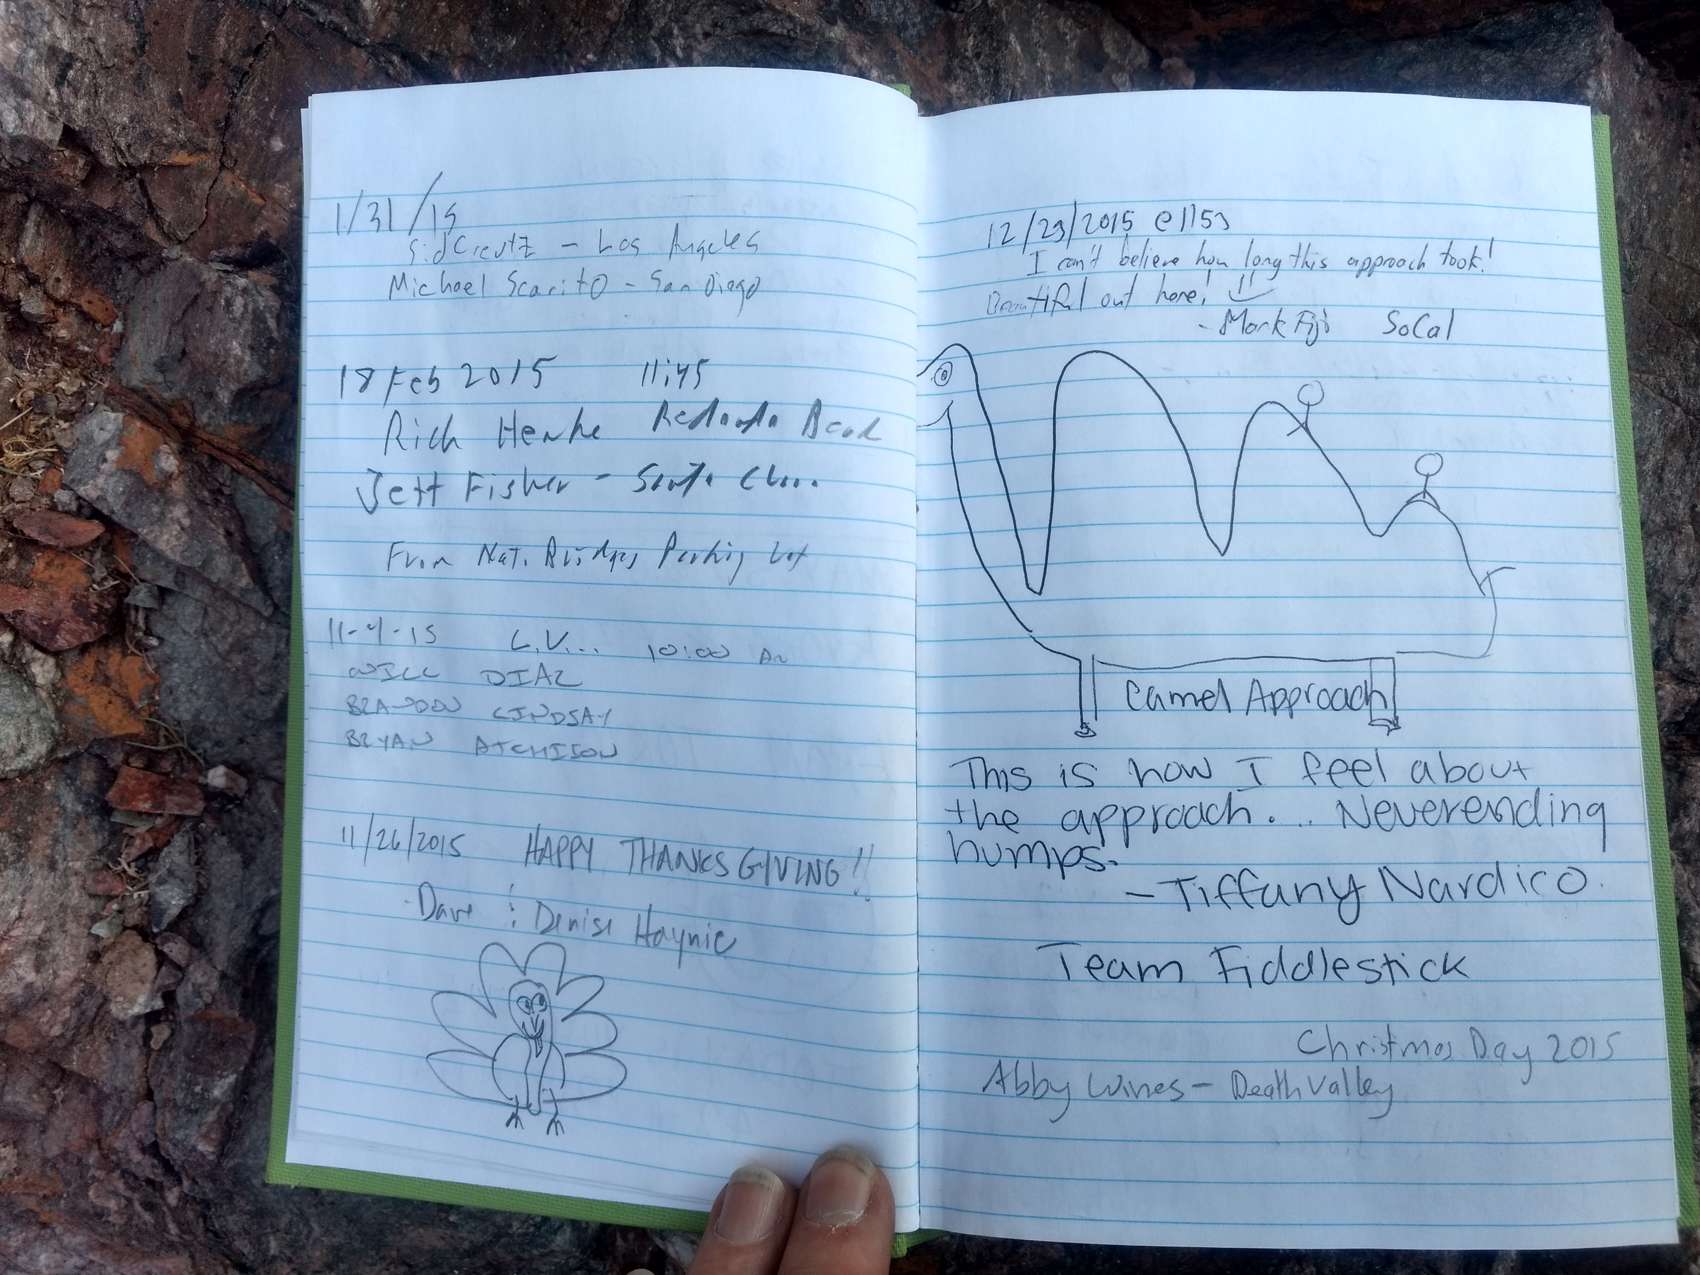 1/31/15
Sid - Los Angeles
Michael Scarito - San Diego
18 Feb 2015 11:45
Rich Henke Redondo
Jeff Fisher - Santa
From Nat. Bridges Parking Lot
11-4-15 L.V... 10:00 AM
WILL DIAZ
BRANDON LINDSAY
BRYAN ATCHISON
11/26/2015 HAPPY THANKSGIVING!!
- Dave & Denise Haynie
12/23/2015 @ 1153
I can't believe how long this approach took!
Beautiful out here!
- Mark Fiji SoCal
Camel Approach
This is how I feel about
the approach... Neverending
humps.
- Tiffany Nardico.
Team Fiddlestick
Christmas Day 2015
Abby Wines - Death Valley